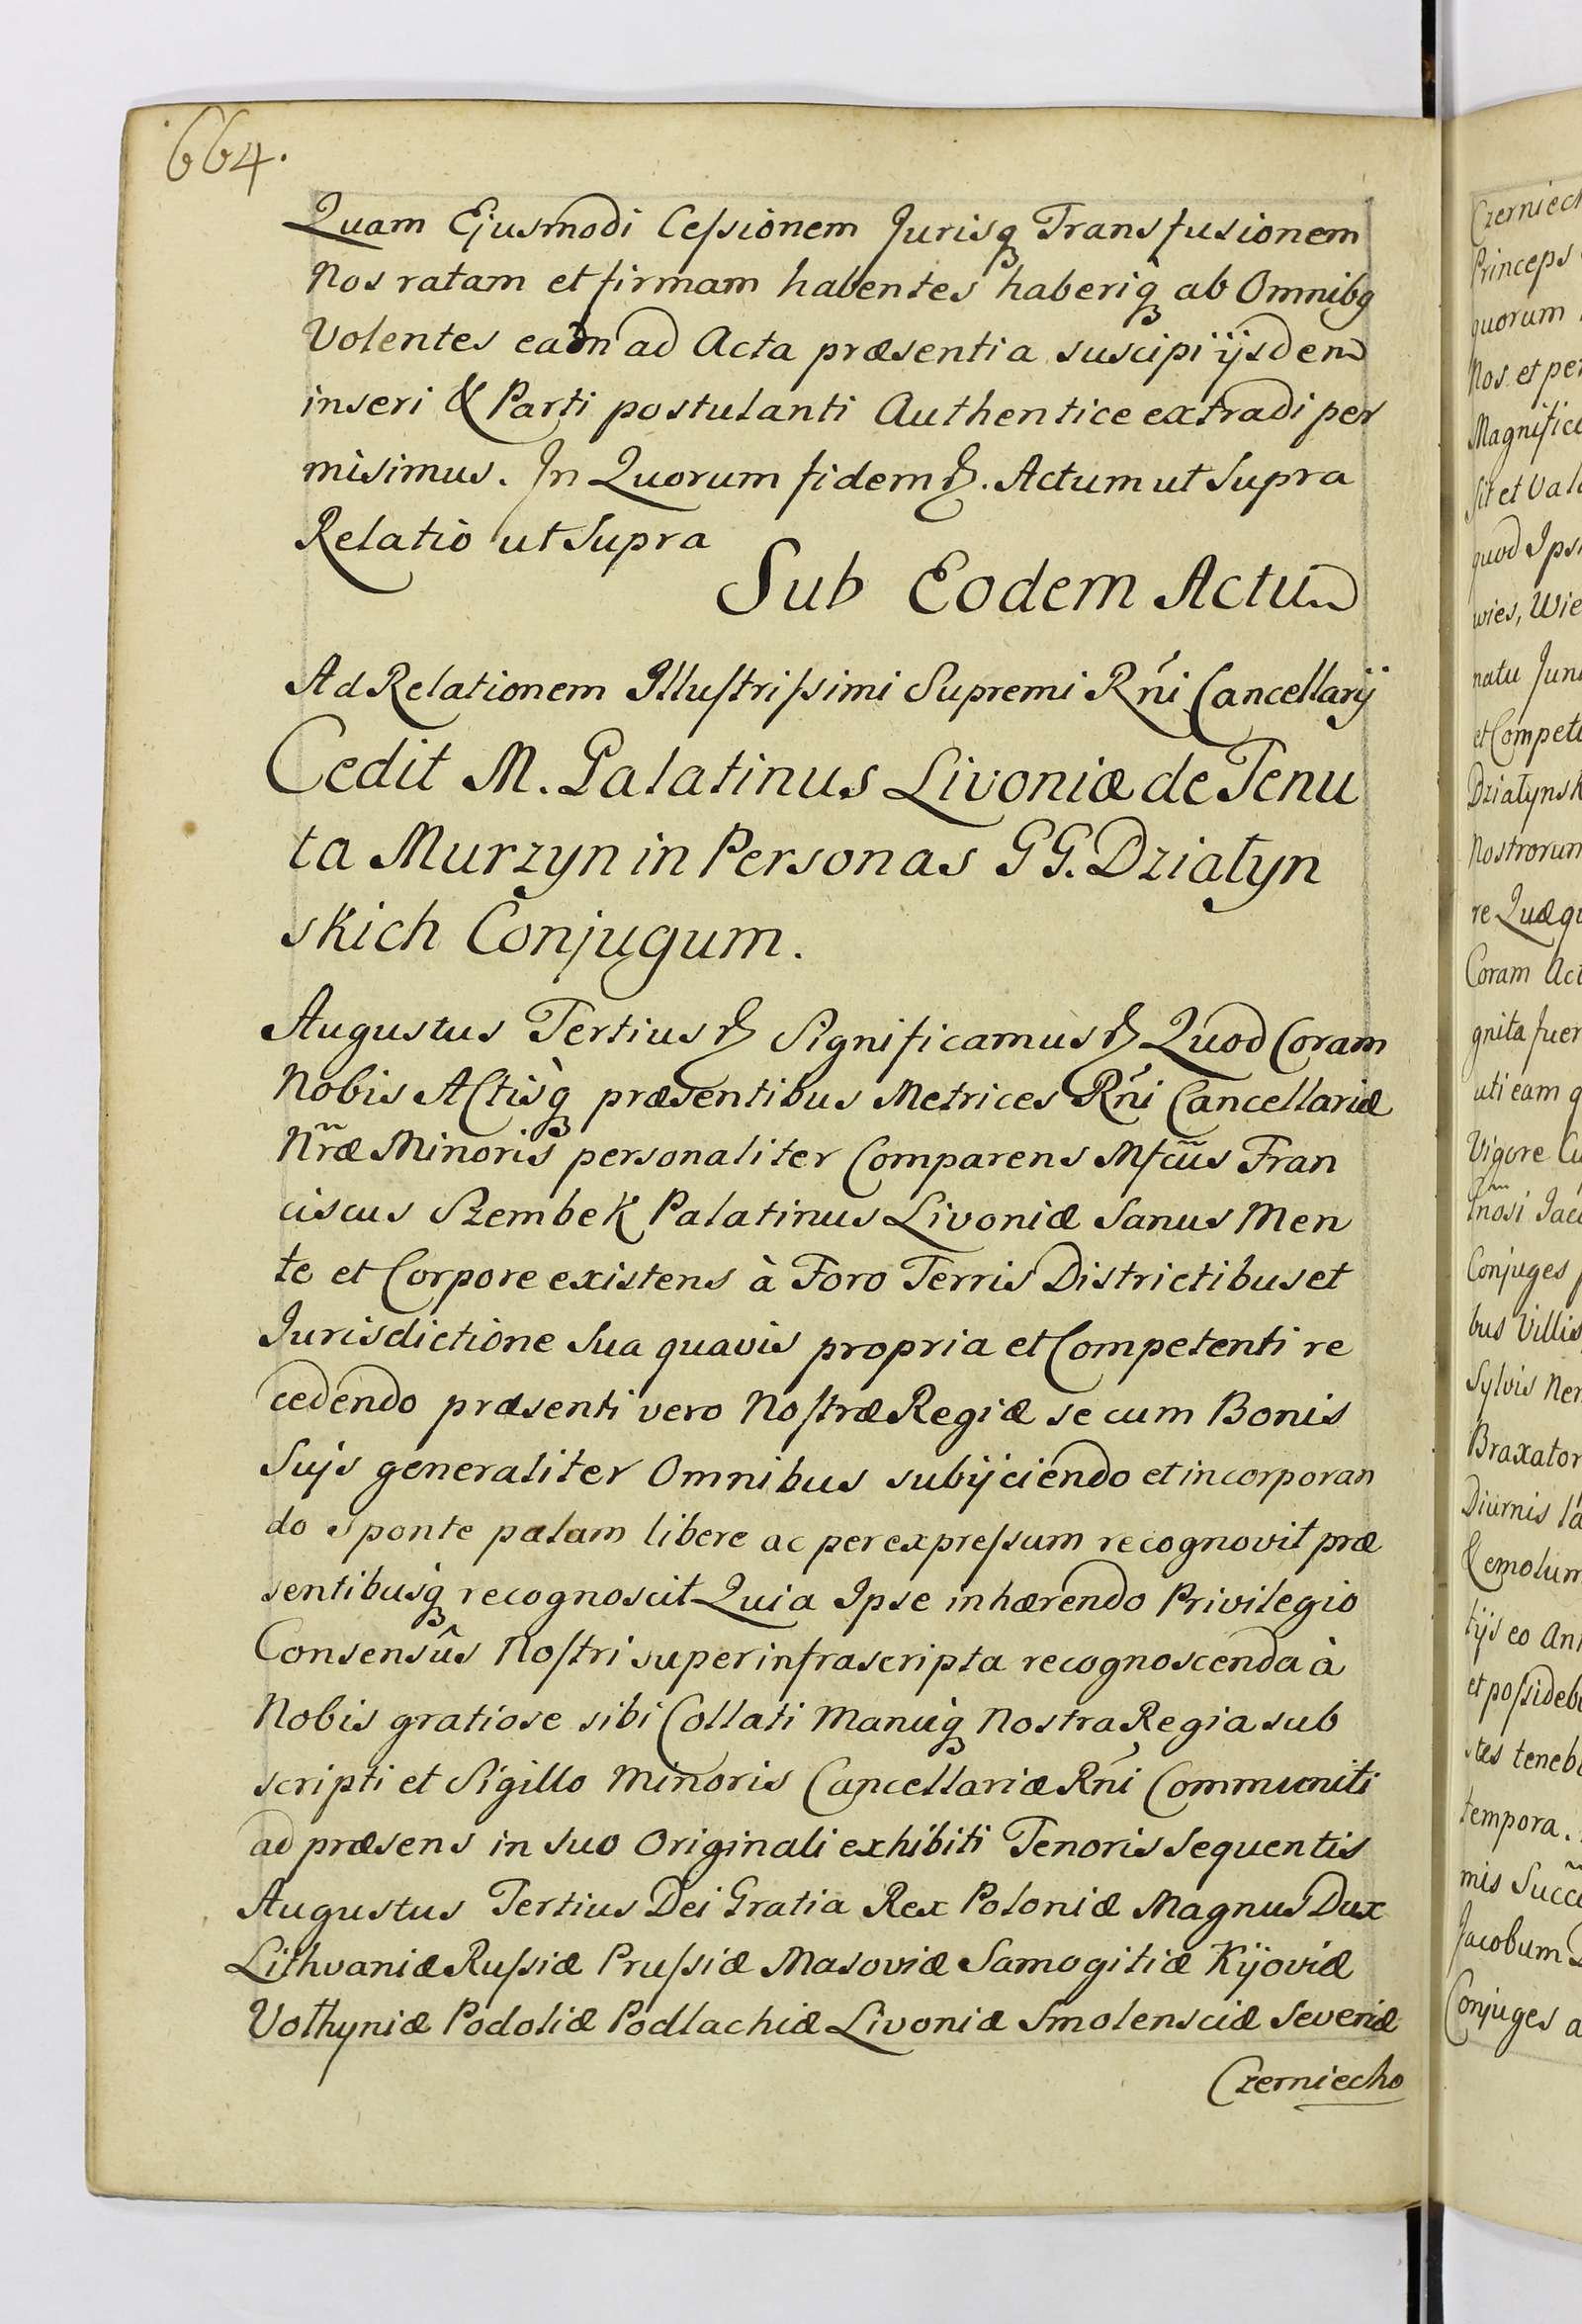 664.
Quam Ejusmodi Cessionem Jurisq Transfusionem
Nos ratam et firmam habentes haberiq ab Omnibq
Volentes eadn ad Acta præsentia suscipi ijsdem
inseri & Parti postulanti Authentice extradi per
misimus. In Quorum fidem &. Actum ut Supra
Relatio ut Supra
Sub Eodem Actu
Ad Relationem Illustrissimi Supremi Rńi Cancellarij
Cedit M. Palatinus Livoniæ de Tenu
ta Murzyn in Personas GG. Działyn
skich Conjugum.
Augustus Tertius & Significamus & Quod Coram
Nobis Actisq̀ præsentibus Metrices Rńi Cancellariæ
Nr̃æ Minoris personaliter Comparens Mfcũs Fran
ciscus Szembek Palatinus Livoniæ Sanus Men
te et Corpore existens à Foro Terris Districtibus et
Jurisdictione Sua quavis propria et Competenti re
cedendo præsenti vero Nostræ Regiæ se cum Bonis
Suijs generaliter Omnibus subijciendo et incorporan
do sponte palam libere ac per expressum recognovit præ
sentibusq̀ recognoscit Quia Ipse inhærendo Privilegio
Consensûs Nostri super infrascripta recognoscenda à
Nobis gratiose sibi Collati Manuq̀ Nostra Regia sub
scripti et Sigillo Minoris Cancellariæ Rńi Communiti
ad præsens in suo Originali exhibiti Tenoris Sequentis
Augustus Tertius Dei Gratia Rex Poloniæ Magnus Dux
Lithvaniæ Russiæ Prussiæ Masoviæ Samogitiæ Kijoviæ
Volhyniæ Podoliæ Podlachiæ Livoniæ Smolensciæ Severiæ
Czerniecho
Czerniech
Princeps
quorum
Nos et per
Magnifice
sit et Vale
quod Ips
wies, Wie
natu Juni
et Compete
Działynsk
Nostrorum
re Quæ qu
Coram Act
gnita fuer
uti eam q
Vigore Cu
Gñosi Jaco
Conjuges
bus Villis
Sylvis Nem
Braxator
Diurnis la
& emolum
tijs eo Ani
et possideb
tes teneb
tempora.
mis Succe
Jacobum D
Conjuges a